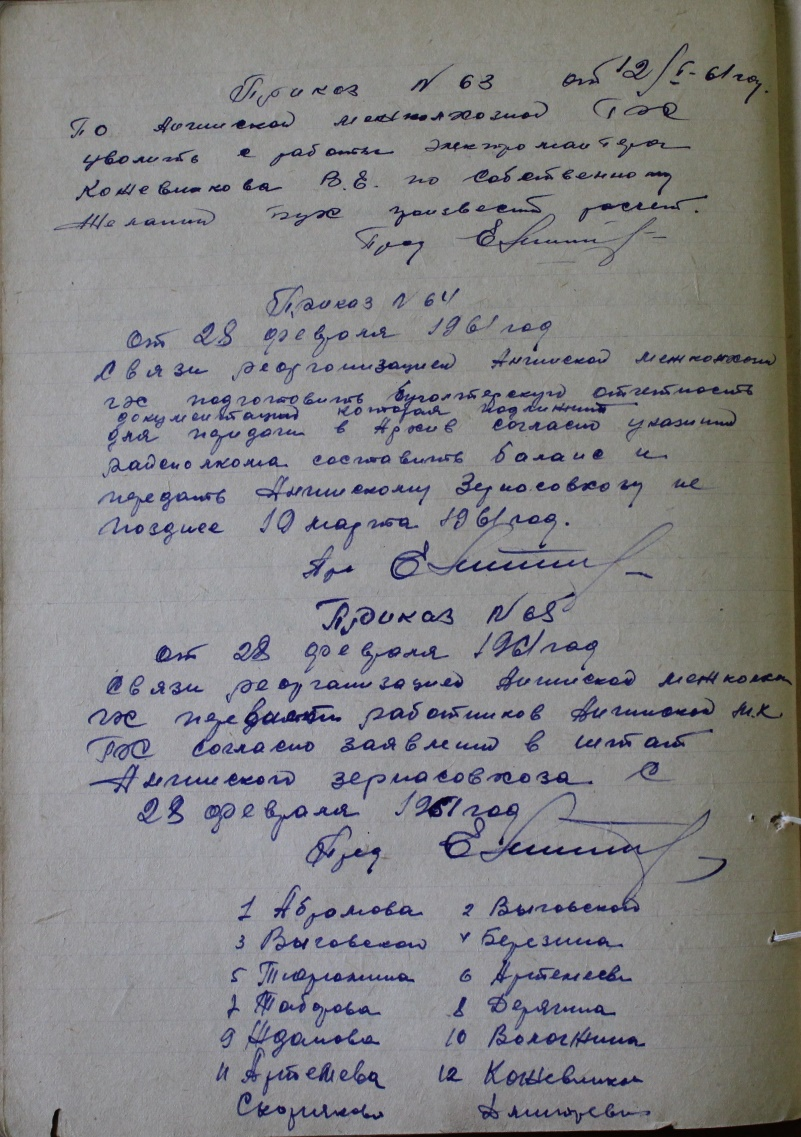 Приказ N 63 от 12/I-61 год.
По Ачинской межколхозной ГЭС
уволить с работы электромонтера
Кожевникова В.Е. по собственному
желанию расчет.
Пред
Приказ N 64
От 28 февраля 1961 год
Связи реорганизацией межколхозн
гэс подготовить буголтерскую отчетность
документаций которая
для передачи в Архив согласно указаний
райсполкома составить баланс и
передать Зерносовхозу не
позднее 10 марта 1961 год.
Пре
Приказ N 65
от 28 февраля 1961 год
Связи реорганизацией межколхоз
гэс работников м.к.
ГЭС согласно заявлений в штат
зерносовхоза с
28 февраля 1961 год
Пред
1 Абрамова 2 Выговской
3 Выговской 4 Березина
5 6 Артемеев
7 Таборова 8 Дерягина
9 Адамова 10 Вологжина
11 Артемева 12 Кожевников
Скорняков Дмитреви